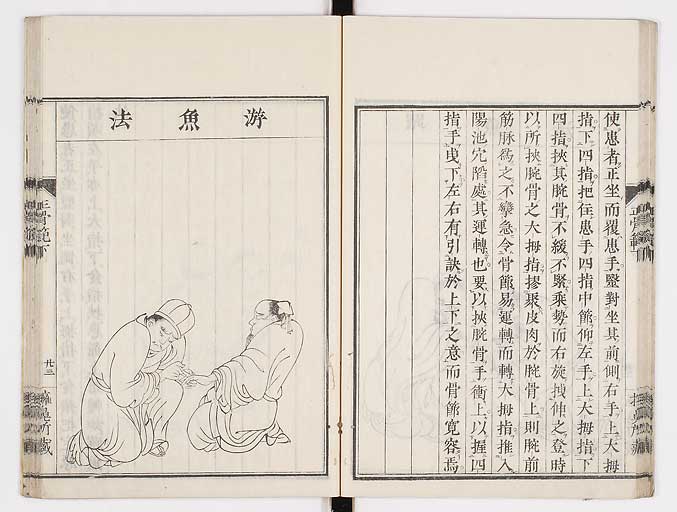 使患者正坐而覆患手鑿對坐其前側右手上大拇
指下四指把住患手四指中節仰左手上大拇指下
四指挾其腕骨不緩不緊乘勢而右旋拽伸之登時
以所挾腕骨之大拇指摎聚皮肉於腕骨上則腕前
筋脉爲之不攣急令骨節易運轉而轉大拇指推入
陽池穴陷處其運轉也要以挾腕骨手衝上以握四
指手曳下左右有引訣於上下之意而骨節寬容焉
游魚法
正骨範下
廿三